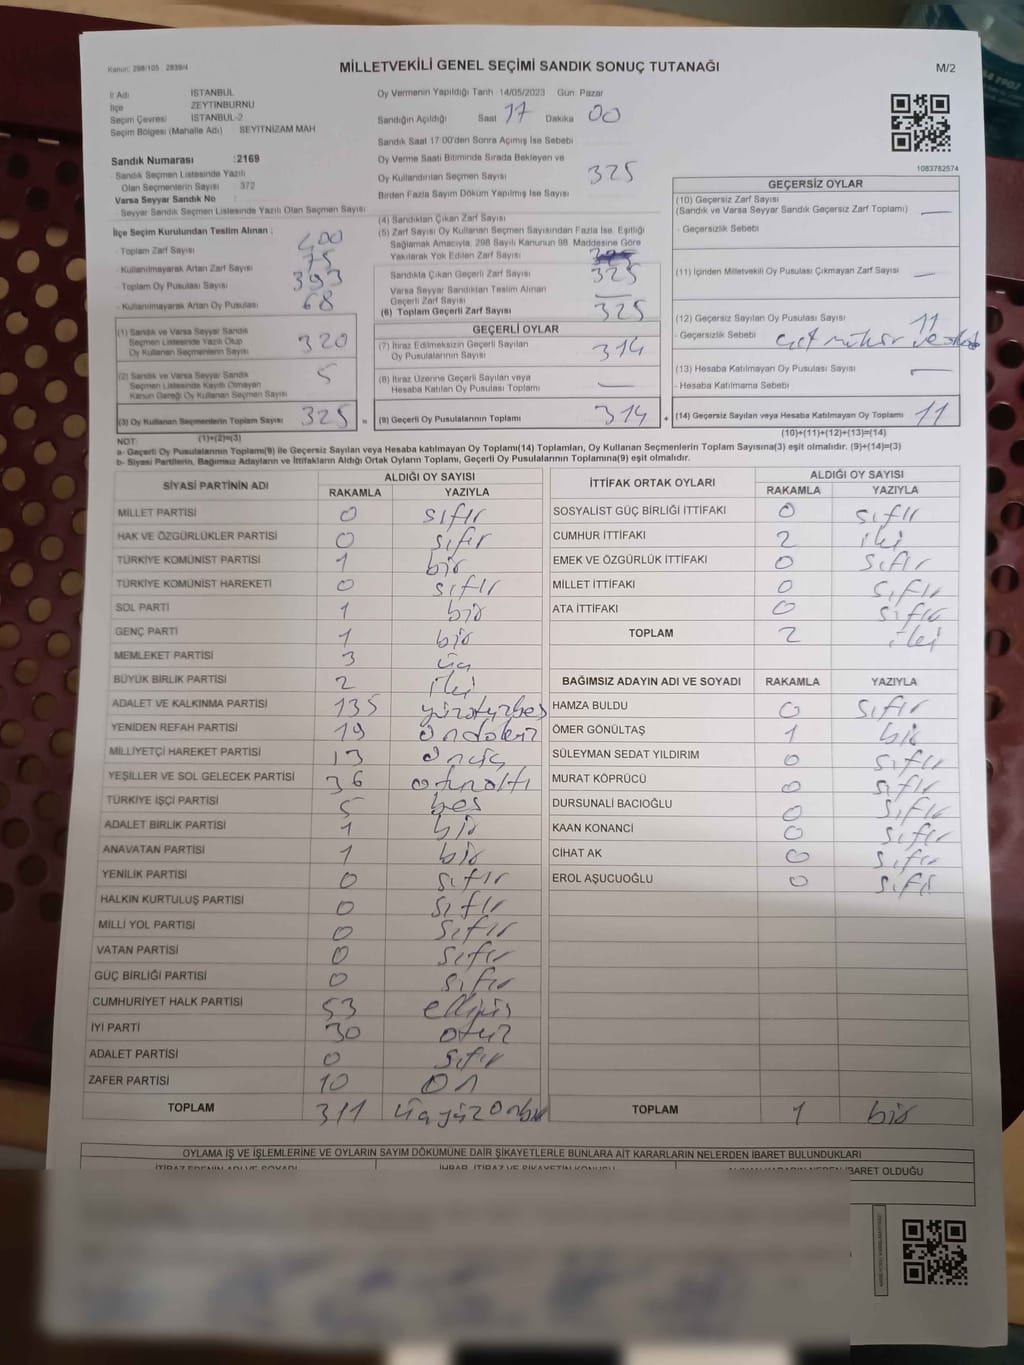 Kanun: 298/105 2839/4
MİLLETVEKİLİ GENEL SEÇİMİ SANDIK SONUÇ TUTANAĞI
M/2
İl Adı İSTANBUL
İlçe ZEYTİNBURNU
Seçim Çevresi İSTANBUL-2
Seçim Bölgesi (Mahalle Adı) SEYİTNİZAM MAH
Sandık Numarası :2169
Sandık Seçmen Listesinde Yazılı
Olan Seçmenlerin Sayısı : 372
Varsa Seyyar Sandık No :
Seyyar Sandık Seçmen Listesinde Yazılı Olan Seçmen Sayısı
İlçe Seçim Kurulundan Teslim Alınan :
Toplam Zarf Sayısı 400
- Kullanılmayarak Artan Zarf Sayısı 75
- Toplam Oy Pusulası Sayısı 393
- Kullanılmayarak Artan Oy Pusulası 68
(1) Sandık ve Varsa Seyyar Sandık
Seçmen Listesinde Yazılı Olup
Oy Kullanan Seçmenlerin Sayısı 320
(2) Sandık ve Varsa Seyyar Sandık
Seçmen Listesinde Kayıtlı Olmayan
Kanun Gereği Oy Kullanan Seçmen Sayısı 5
(3) Oy Kullanan Seçmenlerin Toplam Sayısı 325 =
(1)+(2)=(3)
Oy Vermenin Yapıldığı Tarih 14/05/2023 Gün: Pazar
Sandığın Açıldığı Saat 17 Dakika 00
Sandık Saat 17:00'den Sonra Açılmış İse Sebebi
Oy Verme Saati Bitiminde Sırada Bekleyen ve
Oy Kullandırılan Seçmen Sayısı 325
Birden Fazla Sayım Döküm Yapılmış İse Sayısı
(4) Sandıktan Çıkan Zarf Sayısı
(5) Zarf Sayısı Oy Kullanan Seçmen Sayısından Fazla İse, Eşitliği
Sağlamak Amacıyla; 298 Sayılı Kanunun 98. Maddesine Göre
Yakılarak Yok Edilen Zarf Sayısı
Sandıkla Çıkan Geçerli Zarf Sayısı 325
Varsa Seyyar Sandıktan Teslim Alınan
Geçerli Zarf Sayısı —
(6) Toplam Geçerli Zarf Sayısı 325
GEÇERLİ OYLAR
(7) İtiraz Edilmeksizin Geçerli Sayılan
Oy Pusulalarının Sayısı 314
(8) İtiraz Üzerine Geçerli Sayılan veya
Hesaba Katılan Oy Pusulası Toplamı —
(9) Geçerli Oy Pusulalarının Toplamı 314 +
1083782574
GEÇERSİZ OYLAR
(10) Geçersiz Zarf Sayısı
(Sandık ve Varsa Seyyar Sandık Geçersiz Zarf Toplamı) —
- Geçersizlik Sebebi
(11) İçinden Milletvekili Oy Pusulası Çıkmayan Zarf Sayısı —
(12) Geçersiz Sayılan Oy Pusulası Sayısı 11
- Geçersizlik Sebebi
(13) Hesaba Katılmayan Oy Pusulası Sayısı —
- Hesaba Katılmama Sebebi
(14) Geçersiz Sayılan veya Hesaba Katılmayan Oy Toplamı 11
(10)+(11)+(12)+(13)=(14)
NOT:
a- Geçerli Oy Pusulaları Toplamı(9) ile Geçersiz Sayılan veya Hesaba katılmayan Oy Toplamı(14) Toplamları, Oy Kullanan Seçmenlerin Toplam Sayısına(3) eşit olmalıdır. (9)+(14)=(3)
b- Siyasi Partilerin, Bağımsız Adayların ve İttifakların Aldığı Ortak Oyların Toplamı, Geçerli Oy Pusulalarının Toplamına(9) eşit olmalıdır.
SİYASİ PARTİNİN ADI ALDIĞI OY SAYISI
RAKAMLA YAZIYLA
MİLLET PARTİSİ 0 sıfır
HAK VE ÖZGÜRLÜKLER PARTİSİ 0 sıfır
TÜRKİYE KOMÜNİST PARTİSİ 1 bir
TÜRKİYE KOMÜNİST HAREKETİ 0 sıfır
SOL PARTİ 1 bir
GENÇ PARTİ 1 bir
MEMLEKET PARTİSİ 3 üç
BÜYÜK BİRLİK PARTİSİ 2 iki
ADALET VE KALKINMA PARTİSİ 135 yüzotuzbeş
YENİDEN REFAH PARTİSİ 19 ondokuz
MİLLİYETÇİ HAREKET PARTİSİ 13 onüç
YEŞİLLER VE SOL GELECEK PARTİSİ 36 otuzaltı
TÜRKİYE İŞÇİ PARTİSİ 5 beş
ADALET BİRLİK PARTİSİ 1 bir
ANAVATAN PARTİSİ 1 bir
YENİLİK PARTİSİ 0 sıfır
HALKIN KURTULUŞ PARTİSİ 0 sıfır
MİLLİ YOL PARTİSİ 0 sıfır
VATAN PARTİSİ 0 sıfır
GÜÇ BİRLİĞİ PARTİSİ 0 sıfır
CUMHURİYET HALK PARTİSİ 53 elliüç
İYİ PARTİ 30 otuz
ADALET PARTİSİ 0 sıfır
ZAFER PARTİSİ 10 on
TOPLAM 311 üçyüzonbir
İTTİFAK ORTAK OYLARI ALDIĞI OY SAYISI
RAKAMLA YAZIYLA
SOSYALİST GÜÇ BİRLİĞİ İTTİFAKI 0 sıfır
CUMHUR İTTİFAKI 2 iki
EMEK VE ÖZGÜRLÜK İTTİFAKI 0 sıfır
MİLLET İTTİFAKI 0 sıfır
ATA İTTİFAKI 0 sıfır
TOPLAM 2 iki
BAĞIMSIZ ADAYIN ADI VE SOYADI RAKAMLA YAZIYLA
HAMZA BULDU 0 sıfır
ÖMER GÖNÜLTAŞ 1 bir
SÜLEYMAN SEDAT YILDIRIM 0 sıfır
MURAT KÖPRÜCÜ 0 sıfır
DURSUNALİ BACIOĞLU 0 sıfır
KAAN KONANCİ 0 sıfır
CİHAT AK 0 sıfır
EROL AŞUCUOĞLU 0 sıfır
TOPLAM 1 bir
OYLAMA İŞ VE İŞLEMLERİNE VE OYLARIN SAYIM DÖKÜMÜNE DAİR ŞİKAYETLERLE BUNLARA AİT KARARLARIN NELERDEN İBARET BULUNDUKLARI
İTİRAZ EDENİN ADI VE SOYADI İHBAR, İTİRAZ VE ŞİKAYETİN KONUSU İBARET OLDUĞU